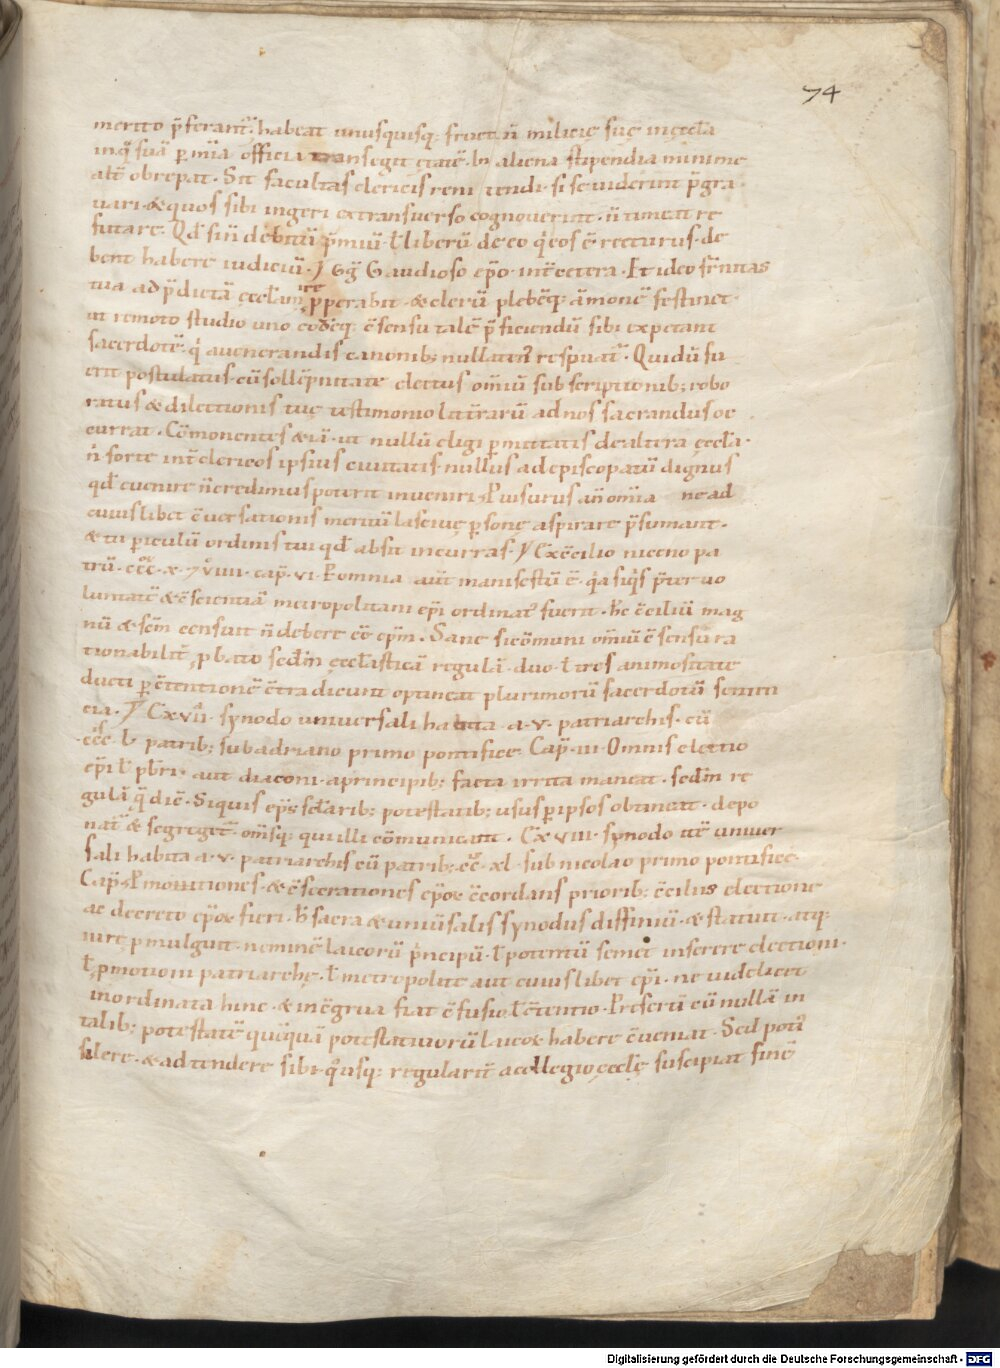 74
merito p̄ferant᷑. habeat unusquisq; fructū militię suę in ęccl̄a
in q̄ suā p̄ om̄ia officia transegit ętatē. In aliena stipendia minime
alt̄ obrepat. Sit facultas clericis reni tendi. si se uiderint p̄gra
uari. & quos sibi ingeri ex transuerso cognouerint. n̄ timeat re
futare. Qd̄ si n̄ debitū p̄miū. ł liberū de eo q̇ eos ē recturus. de
bent habere iudiciū. Gḡ Gaudioso ep̄o. int̄ cetera. Et ideo fr̄nitas
tua ad p̄dictā ęccl̄am ire p̱perabit. & clerū plebēq; āmonē festinet.
ut remoto studio uno eodēq; c̄sensu talē p̄ficiendū sibi expetant
sacerdotē. q̇ a uenerandis canonib; nullaten᷒ respuat᷑. Qui dū fu
erit postulatus. cū sollēpnitate electus om̄iū subscriptionib; robo
ratus & dilectionis tuę testimonio litt̄rarū ad nos sacrandus oc
currat. Cōmonentes & iā. ut nullū eligi p̱mittatis de altera ęccl̄a.
n̄ forte int̄ clericos ipsius ciuitatis. nullus ad episcopatū dignus
qd̄ euenire n̄ credimus poterit inueniri. Puisurus an̄ om̄ia ne ad
cuiuslibet c̄uersationis meritū lasciuę p̱sonę aspirare p̄sumant.
& tu piculū ordinis tui qd̄ absit incurras. Ex c̄cilio niceno pa
trū. ccc. x. 7 viiii. cap̄. vi. P̱ omnia aut̄ manifestū ē. q̇a siq̇s p̄ter uo
luntatē & c̄scientiā metropolitani ep̄i ordinat᷒ fuerit. hc̄ c̄ciliū mag
nū & sc̄m censuit n̄ debere eē ep̄m. Sane si cōmuni om̄iū c̄sensu ra
tionabilit̄ p̱bato scd̄m ęccl̄asticā regulā. duo ł tres animositate
ducti p̱ c̄tentionē c̄tra dicunt optineat plurimorū sacerdotū senten
cia. Ex vii. synodo uniuersali habita a. v. patriarchis. cū
ccc. l. patrib; sub adriano primo pontifice. Cap̄. iii. Omnis electio
ep̄i ł pb̄ri. aut diaconi. a principib; facta irrita maneat. scd̄m re
gulā q̄ dic̄. Siquis ep̄s sc̄larib; potestatib; usus p̱ ipsos obtineat. depo
nat᷑ & segreget᷑ om̄sq; qui illi cōmunicant. Ex viii. synodo itē uniuer
sali habita a. v. patriarchis cū patrib; cc. xl. sub nicolao primo pontifice.
Cap̄. P̱motiones. & c̄secrationes ep̄oꝝ c̄cordans priorib; c̄ciliis electione
ac decreto ep̄oꝝ fieri. h̄ sacra & uniūsalis synodus diffiniū. & statuit. atq;
iure p̱mulguit. neminē laicorū p̄ncipū. ł potentū semet inserere electioni.
ł p̱motioni patriarchę. ł metropolite aut cuiuslibet ep̄i. ne uidelicet
inordinata hinc. & inc̄grua fiat c̄fusio. ł c̄tentio. Presertī cū nullā in
talib; potestatē quēquā potestatiuorū laicoꝝ habere c̄ueniat. Sed poti᷒
silere. & adtendere sibi quousq; regularit̄ a collegio ęccl̄ę suscipiat finē
Digitalisierung gefördert durch die Deutsche Forschungsgemeinschaft - DFG